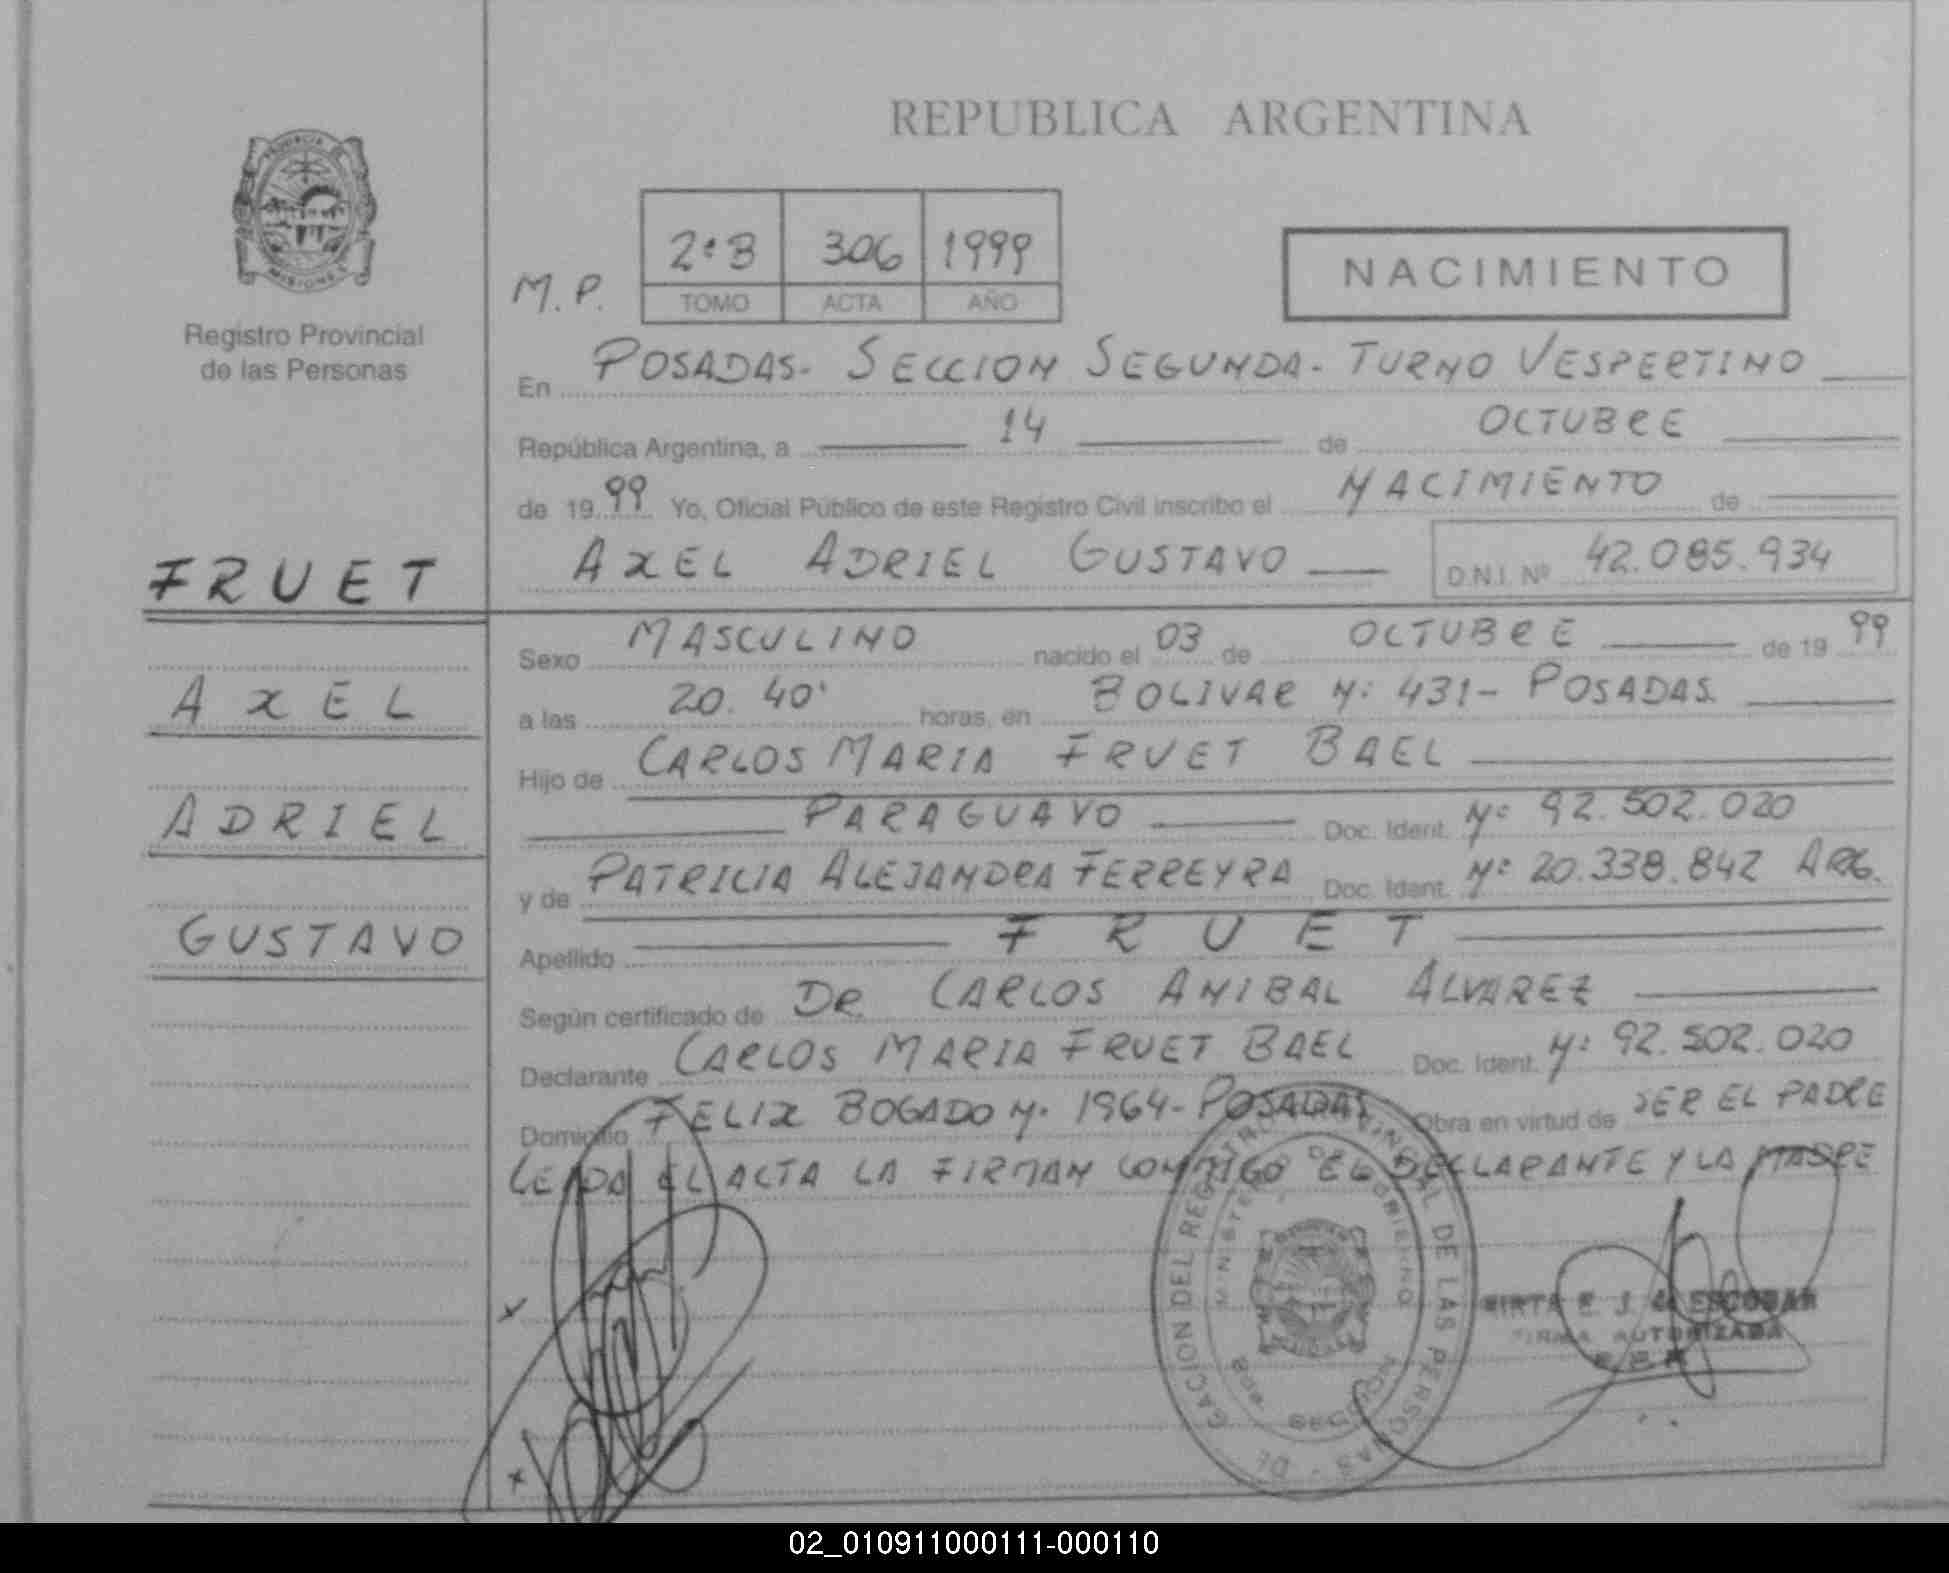 REPUBLICA ARGENTINA
PROVINCIA DE
MISIONES
Registro Provincial
de las Personas
M.P.
2ºB 306 1999
TOMO ACTA AÑO
NACIMIENTO
En POSADAS- SECCION SEGUNDA- TURNO VESPERTINO
República Argentina, a 14 de OCTUBRE
de 1999 Yo, Oficial Público de este Registro Civil inscribo el NACIMIENTO de
AXEL ADRIEL GUSTAVO D.N.I. Nº 42.085.934
FRUET
AXEL
ADRIEL
GUSTAVO
Sexo MASCULINO nacido el 03 de OCTUBRE de 1999
a las 20.40' horas, en BOLIVAR Nº 431- POSADAS
Hijo de CARLOS MARIA FRUET BAEL
PARAGUAYO Doc. Ident. Nº 92.502.020
y de PATRICIA ALEJANDRA FERREYRA Doc. Ident. Nº 20.338.842 ARG.
Apellido FRUET
Según certificado de DR. CARLOS ANIBAL ALVAREZ
Declarante CARLOS MARIA FRUET BAEL Doc. Ident. Nº 92.502.020
Domicilio FELIX BOGADO Nº 1964- POSADAS Obra en virtud de SER EL PADRE
LEIDA EL ACTA LA FIRMAN CONMIGO EL DECLARANTE Y LA MADRE
DEL REGISTRO PROVINCIAL DE LAS PERSONAS
MINISTERIO DE GOBIERNO
MIRTA E. J. de ESCOBAR
FIRMA AUTORIZADA
02_010911000111-000110